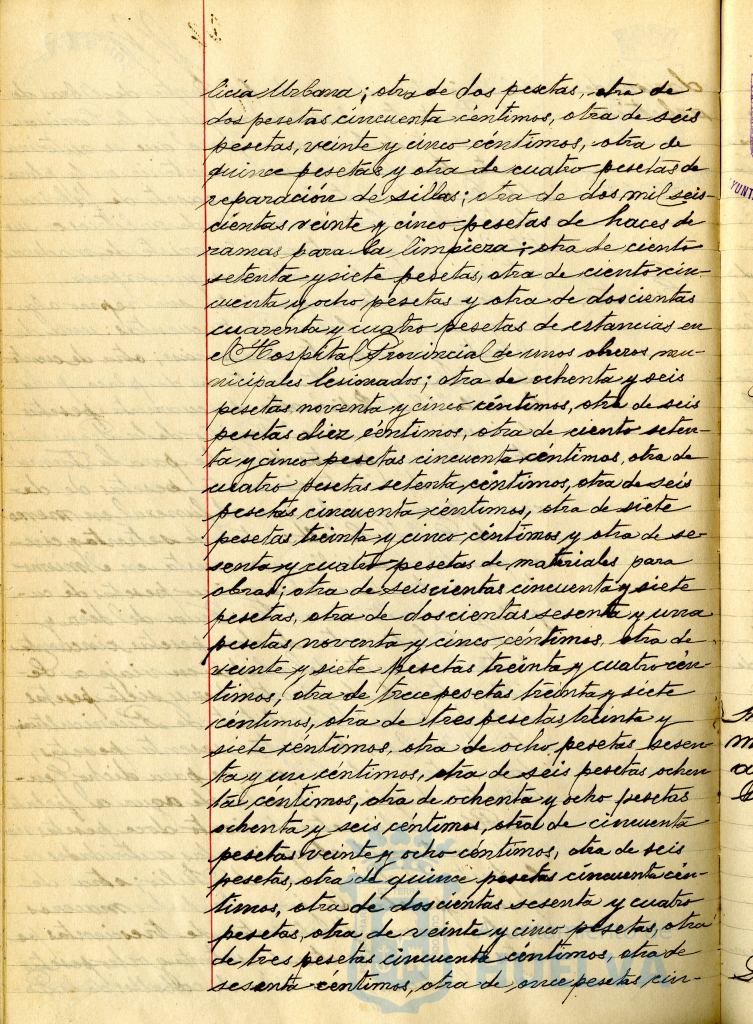 licia Urbana; otra de dos pesetas, otra de
dos pesetas cincuenta céntimos, otra de seis
pesetas, veinte y cinco céntimos, otra de
quince pesetas y otra de cuatro pesetas de
reparación de sillas; otra de dos mil seis-
cientas veinte y cinco pesetas de haces de
ramas para la limpieza; otra de ciento
setenta y siete pesetas, otra de ciento cin-
cuenta y ocho pesetas y otra de doscientas
cuarenta y cuatro pesetas de estancias en
el Hospital Provincial de unos obreros mu-
nicipales lesionados; otra de ochenta y seis
pesetas noventa y cinco céntimos, otra de seis
pesetas diez céntimos, otra de ciento seten-
ta y cinco pesetas cincuenta céntimos, otra de
cuatro pesetas setenta céntimos, otra de seis
pesetas cincuenta céntimos, otra de siete
pesetas treinta y cinco céntimos y otra de se-
senta y cuatro pesetas de materiales para
obras; otra de seiscientas cincuenta y siete
pesetas, otra de doscientas sesenta y una
pesetas noventa y cinco centimos, otra de
veinte y siete pesetas treinta y cuatro cén-
timos, otra de trece pesetas treinta y siete
céntimos, otra de tres pesetas treinta y
siete céntimos, otra de ocho pesetas sesen-
ta y un céntimos, otra de seis pesetas ochen-
ta céntimos, otra de ochenta y ocho pesetas
ochenta y seis céntimos, otra de cincuenta
pesetas veinte y ocho céntimos, otra de seis
pesetas, otra de quince pesetas cincuenta cén-
timos, otra de doscientas sesenta y cuatro
pesetas, otra de veinte y cinco pesetas, otra
de tres pesetas cincuenta céntimos, otra de
sesenta céntimos, otra de once pesetas, cin-
HUELVA